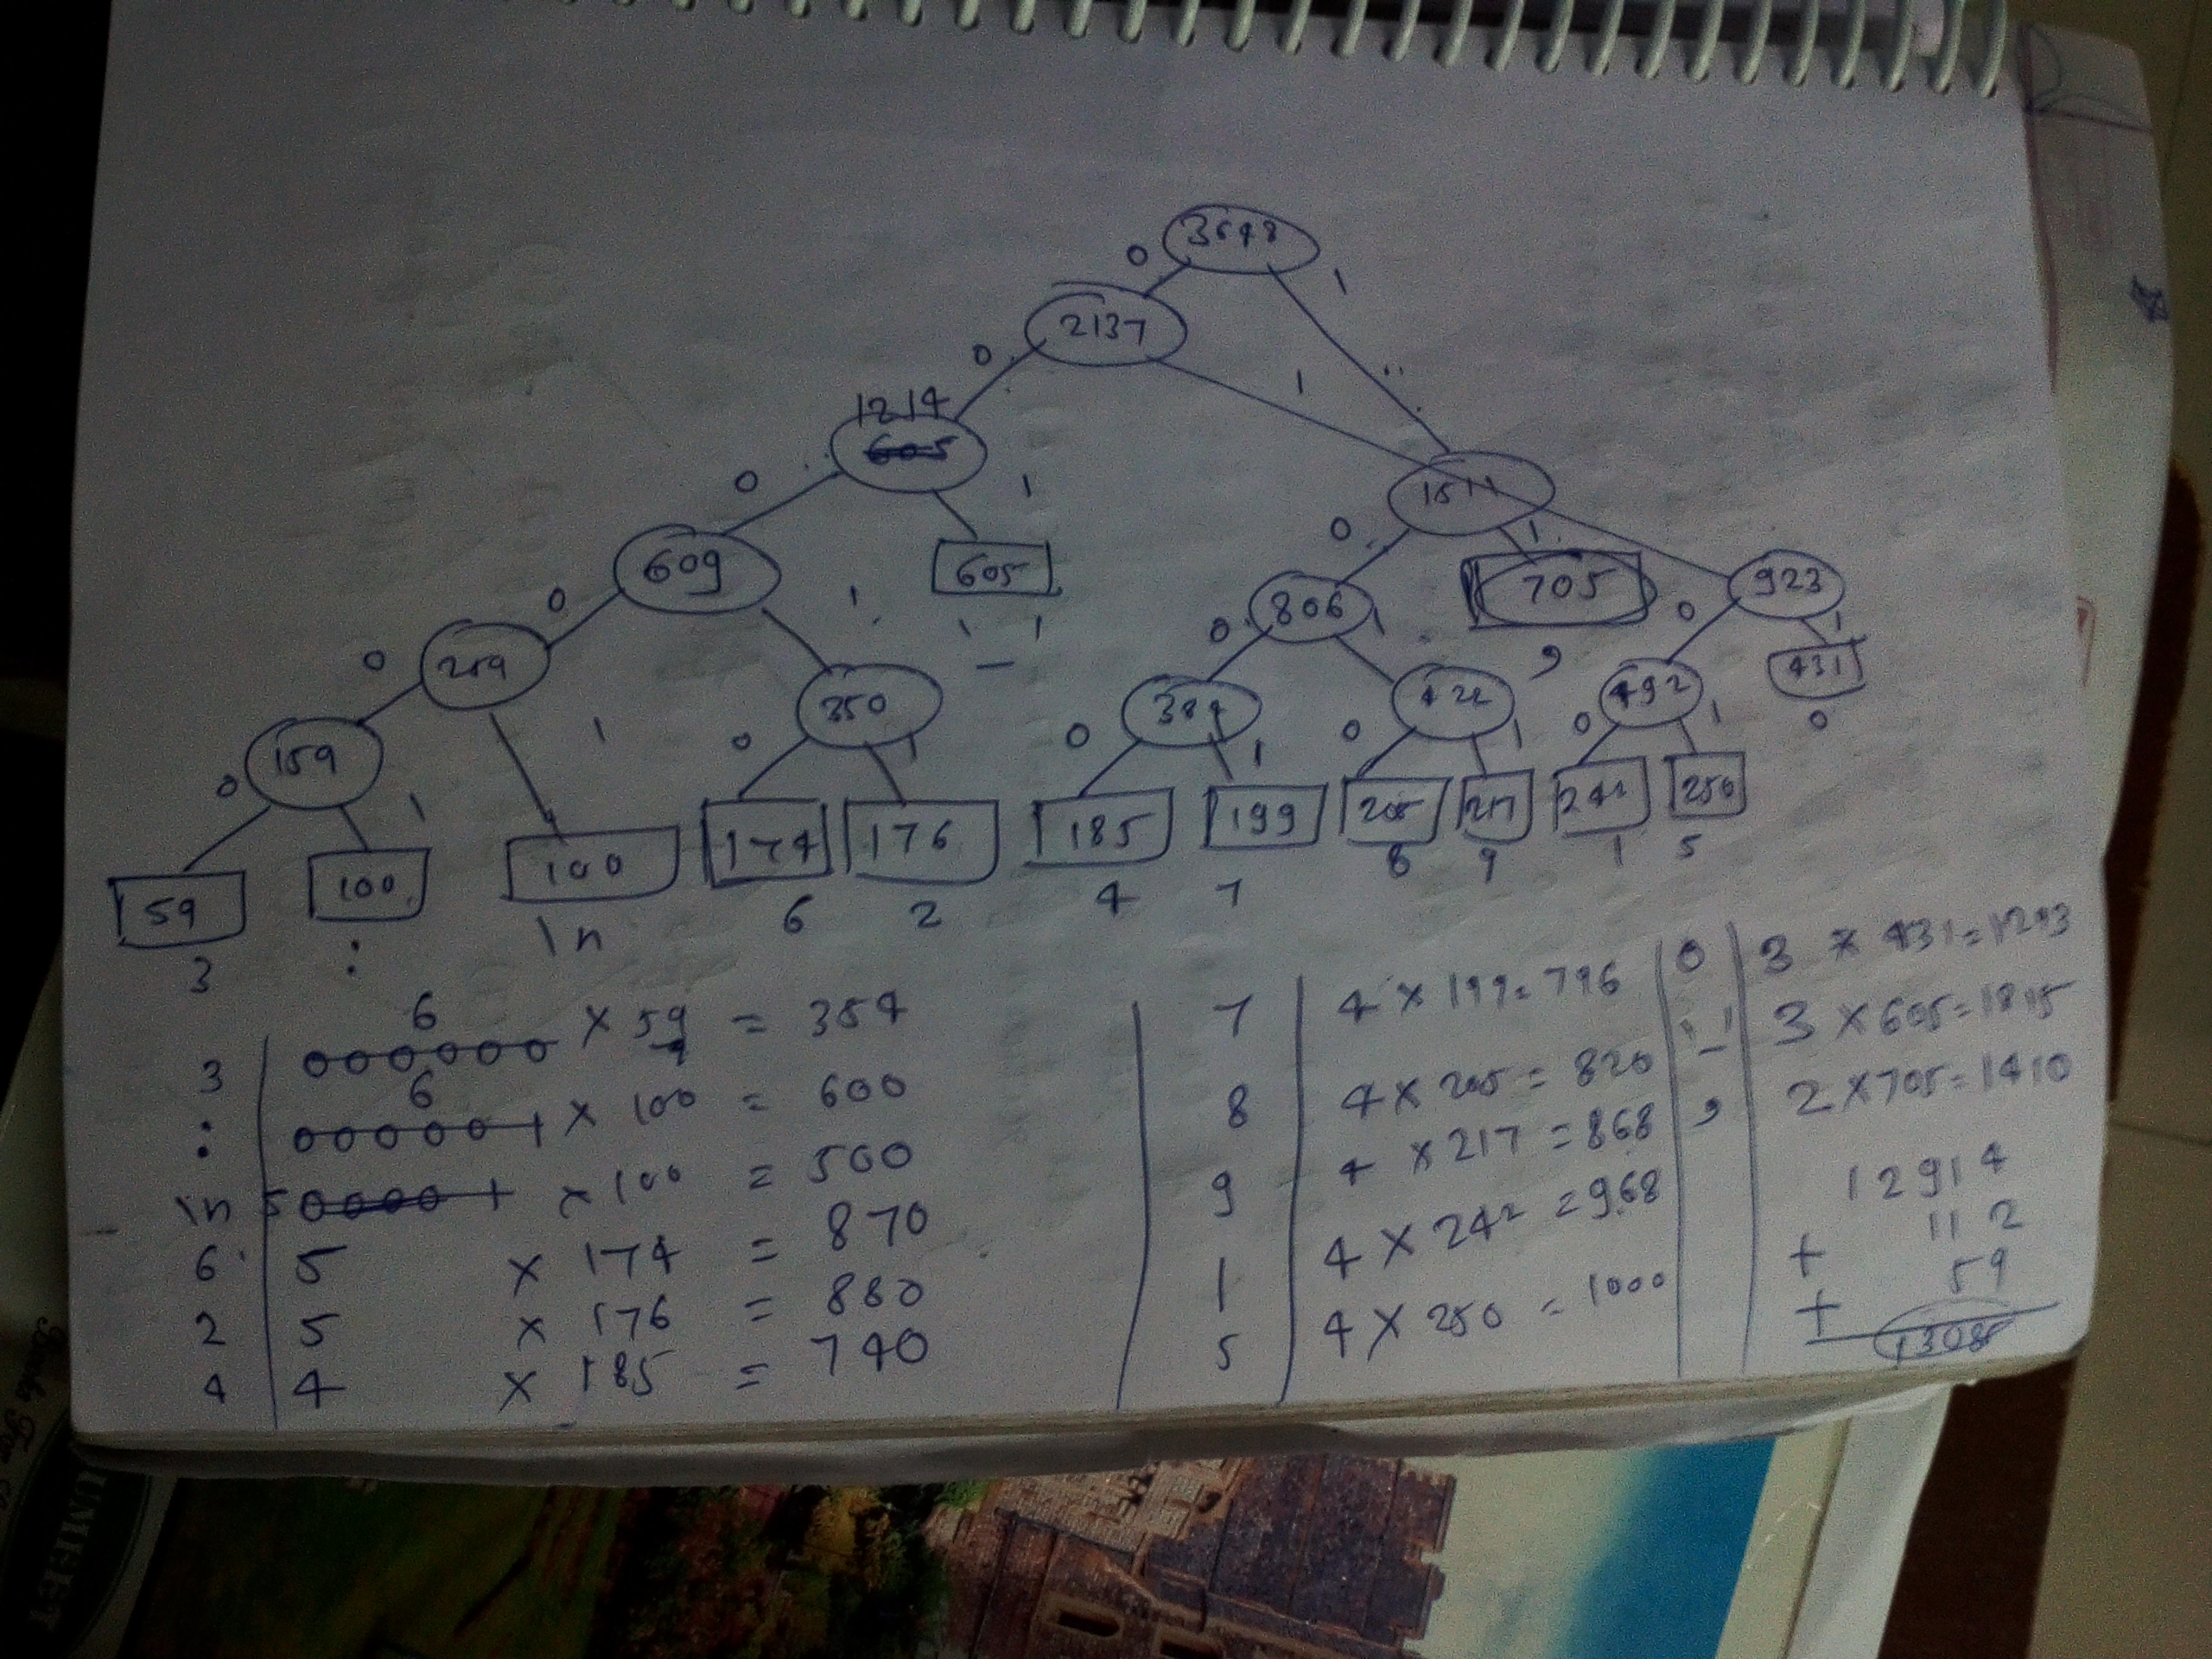 3648
0 1
2137
0 1
1214
605
0 1
609
605
'-'
1511
0 1
806
705
,
923
0 1
0 1
259
350
384
422
492
431
0
0 1
0 1
0 1
0 1
0 1
159
0 1
59
3
100
:
100
\n
174
6
176
2
185
4
199
7
205
8
217
9
242
1
250
5
3 | 000000 6 × 59 = 354
: | 000001 6 × 100 = 600
\n | 5 00001 × 100 = 500
6 | 5 × 174 = 870
2 | 5 × 176 = 880
4 | 4 × 185 = 740
7 | 4 × 199 = 796
8 | 4 × 205 = 820
9 | 4 × 217 = 868
1 | 4 × 242 = 968
5 | 4 × 250 = 1000
0 | 3 × 431 = 1293
'-' | 3 × 605 = 1815
, | 2 × 705 = 1410
12914
+ 112
+ 59
13085
SUMEET